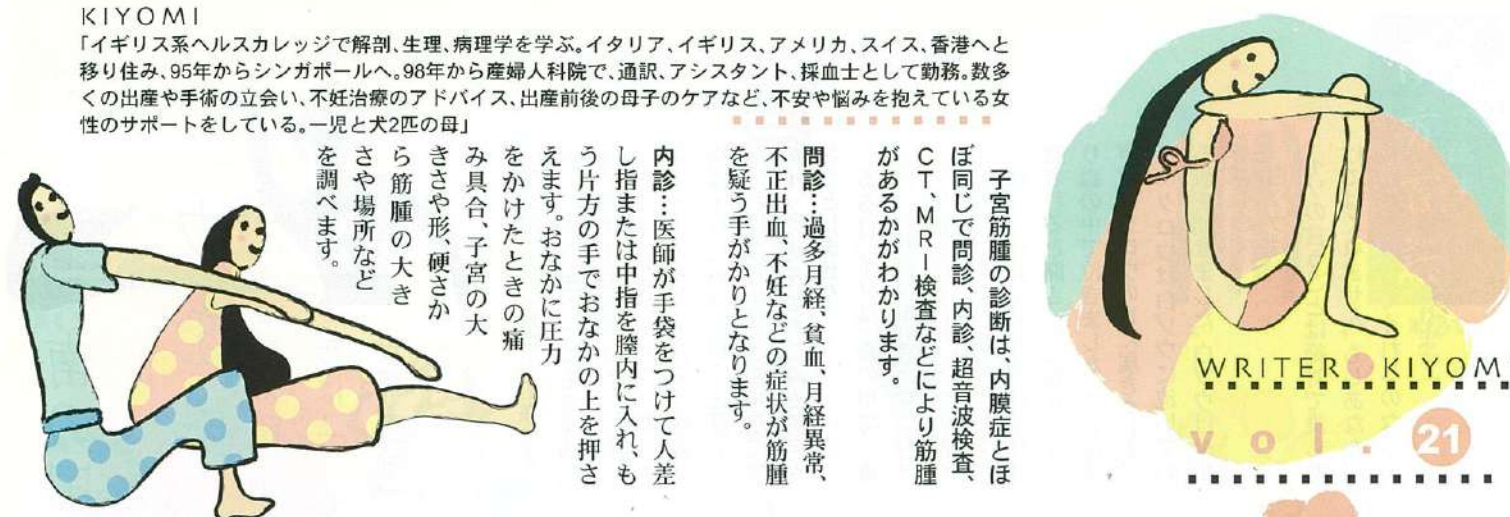 KIYOMI
「イギリス系ヘルスカレッジで解剖、生理、病理学を学ぶ。イタリア、イギリス、アメリカ、スイス、香港へと
移り住み、95年からシンガポールへ。98年から産婦人科院で、通訳、アシスタント、採血士として勤務。数多
くの出産や手術の立会い、不妊治療のアドバイス、出産前後の母子のケアなど、不安や悩みを抱えている女
性のサポートをしている。一児と犬2匹の母」
WRITER KIYOM
vol. 21
子宮筋腫の診断は、内膜症とほ
ぼ同じで問診、内診、超音波検査、
CT、MRI検査などにより筋腫
があるかがわかります。
問診…過多月経、貧血、月経異常、
不正出血、不妊などの症状が筋腫
を疑う手がかりとなります。
内診…医師が手袋をつけて人差
し指または中指を膣内に入れ、も
う片方の手でおなかの上を押さ
えます。おなかに圧力
をかけたときの痛
み具合、子宮の大
きさや形、硬さか
ら筋腫の大き
さや場所など
を調べます。